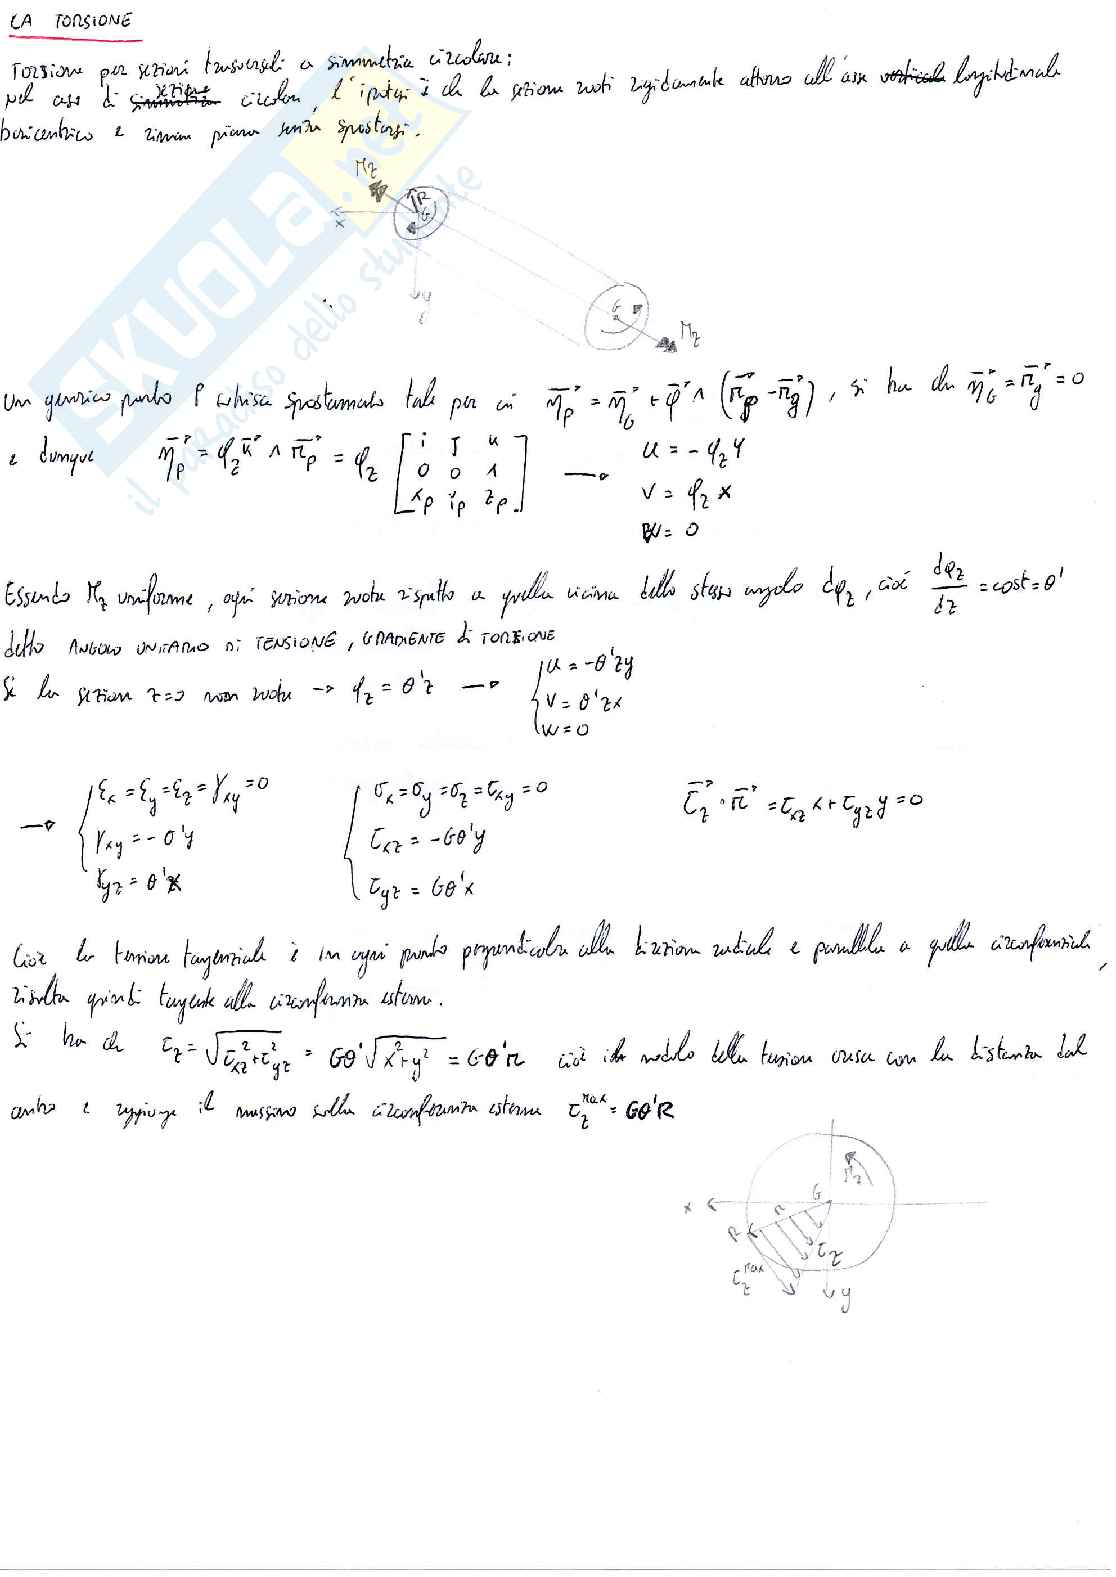 LA TORSIONE
Torsione per sezioni trasversali a simmetria circolare:
nel caso di sezione circolare, l'ipotesi è che la sezione ruoti rigidamente attorno all'asse verticale longitudinale
baricentrico e rimane piana senza spostarsi.
Mz
R
G
x
y
G
Mz
SKUOLA.net
il paradiso dello studente
Un generico punto P subisce spostamento tale per cui η̄P = η̄G + φ̄ ∧ (r̄P - r̄g), si ha che η̄G = r̄g = 0
e dunque η̄P = φz k̄ ∧ r̄P = φz [i j k; 0 0 1; xP yP zP] → u = -φz y
v = φz x
w = 0
Essendo Mz uniforme, ogni sezione ruota rispetto a quella vicina dello stesso angolo dφz, cioè dφz/dz = cost = θ'
detto ANGOLO UNITARIO DI TENSIONE, GRADIENTE di TORSIONE
Se la sezione z=0 non ruota → φz = θ'z → { u = -θ'zy
v = θ'zx
w = 0
→ { εx = εy = εz = γxy = 0
γxy = -θ'y
γyz = θ'x
{ σx = σy = σz = τxy = 0
τxz = -Gθ'y
τyz = Gθ'x
τ̄z · r̄ = τxz x + τyz y = 0
Cioè la tensione tangenziale è in ogni punto perpendicolare alla direzione radiale e parallela a quella circonferenziale,
risulta quindi tangente alla circonferenza esterna.
Si ha che τz = √(τxz² + τyz²) = Gθ'√(x² + y²) = Gθ'r cioè il modulo della tensione cresce con la distanza dal
centro e raggiunge il massimo sulla circonferenza esterna τz^max = Gθ'R
Mz
x
G
r
R
τz
τz^max
y